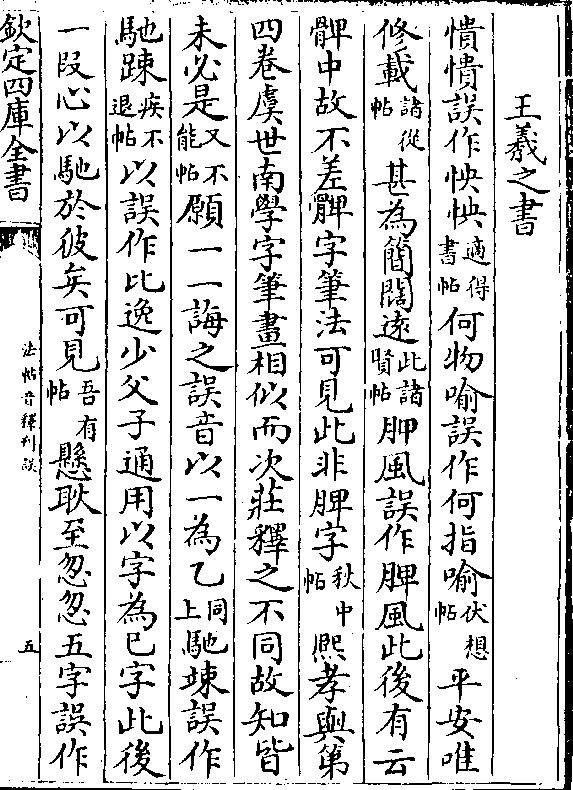 王羲之書
憒憒誤作怏怏適得書帖何物喻誤作何指喻伏想帖平安唯
修載諸從帖甚為簡闊遠此諸賢帖胛風誤作脾風此後有云
髀中故不差髀字筆法可見此非脾字秋中帖熈孝與第
四卷虞世南學字筆畫相似而次莊釋之不同故知皆
未必是又不能帖願一一誨之誤音以一為乙同上馳竦誤作
馳踈疾不退帖以誤作比逸少父子通用以字為已字此後
一段心以馳於彼矣可見吾有帖懸耿至忽忽五字誤作
欽定四庫全書
法帖音釋刋誤
五